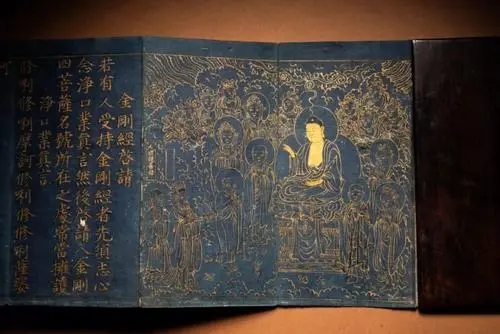 金剛經啓請
若有人受持金剛經者先須志心
念淨口業真言然後啓請八金剛
四菩薩名號所在之處常當擁護
淨口業真言
修唎修唎摩訶修唎修修唎薩婆